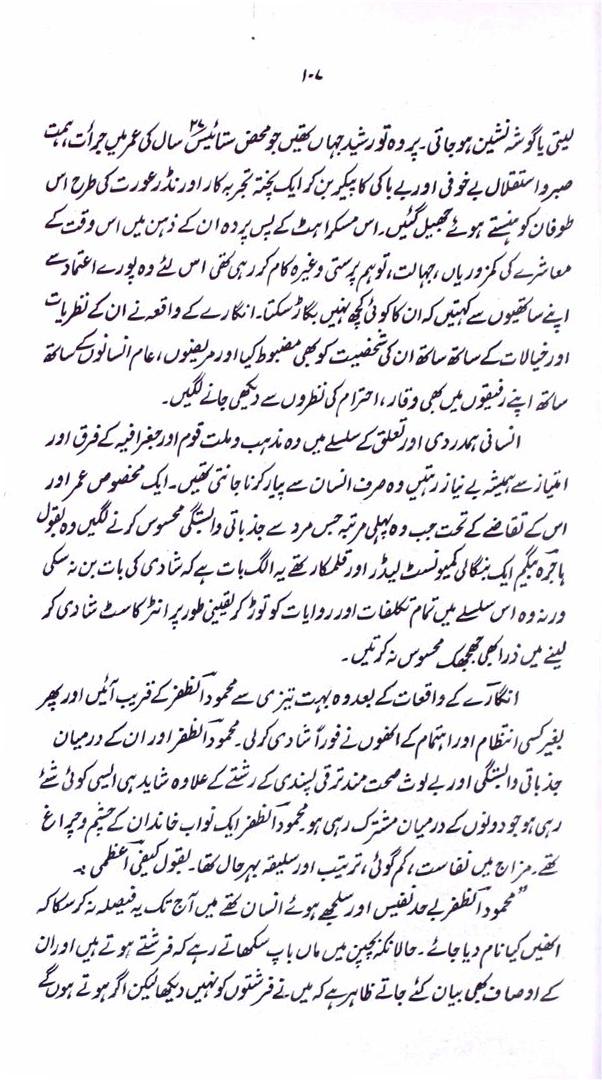 ۱۰۷
لیتی یا گوشہ نشین ہو جاتی۔ پر وہ تو رشید جہاں تھیں جو محض ستائیس ۲۷ سال کی عمر میں جرأت، ہمت
صبر و استقلال بے خوفی اور بے باکی کا پیکر بن کر ایک پختہ تجربہ کار اور نڈر عورت کی طرح اس
طوفان کو ہنستے ہوئے جھیل گئیں۔ اس مسکراہٹ کے پس پردہ ان کے ذہن میں اس وقت کے
معاشرے کی کمزوریاں، جہالت، توہم پرستی وغیرہ کام کر رہی تھی اس لئے وہ پورے اعتماد سے
اپنے ساتھیوں سے کہتیں کہ ان کا کوئی کچھ نہیں بگاڑ سکتا۔ انگارے کے واقعہ نے ان کے نظریات
اور خیالات کے ساتھ ساتھ ان کی شخصیت کو بھی مضبوط کیا اور مریضوں، عام انسانوں کے ساتھ
ساتھ اپنے رفیقوں میں بھی وقار، احترام کی نظروں سے دیکھی جانے لگیں۔
انسانی ہمدردی اور تعلق کے سلسلے میں وہ مذہب و ملت قوم اور جغرافیہ کے فرق اور
امتیاز سے ہمیشہ بے نیاز رہتیں وہ صرف انسان سے پیار کرنا جانتی تھیں۔ ایک مخصوص عمر اور
اس کے تقاضے کے تحت جب وہ پہلی مرتبہ جس مرد سے جذباتی وابستگی محسوس کرنے لگیں وہ بقول
ہاجرہ بیگم ایک بنگالی کمیونسٹ لیڈر اور قلمکار تھے یہ الگ بات ہے کہ شادی کی بات بن نہ سکی
ورنہ وہ اس سلسلے میں تمام تکلفات اور روایات کو توڑ کر یقینی طور پر انٹر کاسٹ شادی کر
لینے میں ذرا بھی جھجھک محسوس نہ کرتیں۔
انگارے کے واقعات کے بعد وہ بہت تیزی سے محمود الظفر کے قریب آئیں اور پھر
بغیر کسی انتظام اور اہتمام کے انھوں نے فوراً شادی کر لی۔ محمود الظفر اور ان کے درمیان
جذباتی وابستگی اور بے لوث صحت مند ترقی پسندی کے رشتے کے علاوہ شاید ہی ایسی کوئی شئے
رہی ہو جو دونوں کے درمیان مشترک رہی ہو۔ محمود الظفر ایک نواب خاندان کے چشم و چراغ
تھے۔ مزاج میں نفاست، کم گوئی، ترتیب اور سلیقہ بہر حال تھا۔ بقول کیفی اعظمی :۔
”محمود الظفر بے حد نفیس اور سلجھے ہوئے انسان تھے میں آج تک یہ فیصلہ نہ کر سکا کہ
انھیں کیا نام دیا جائے۔ حالانکہ بچپن میں ماں باپ سکھاتے رہے کہ فرشتے ہوتے ہیں اور ان
کے اوصاف بھی بیان کئے جاتے ظاہر ہے کہ میں نے فرشتوں کو نہیں دیکھا لیکن اگر ہوتے ہوں گے